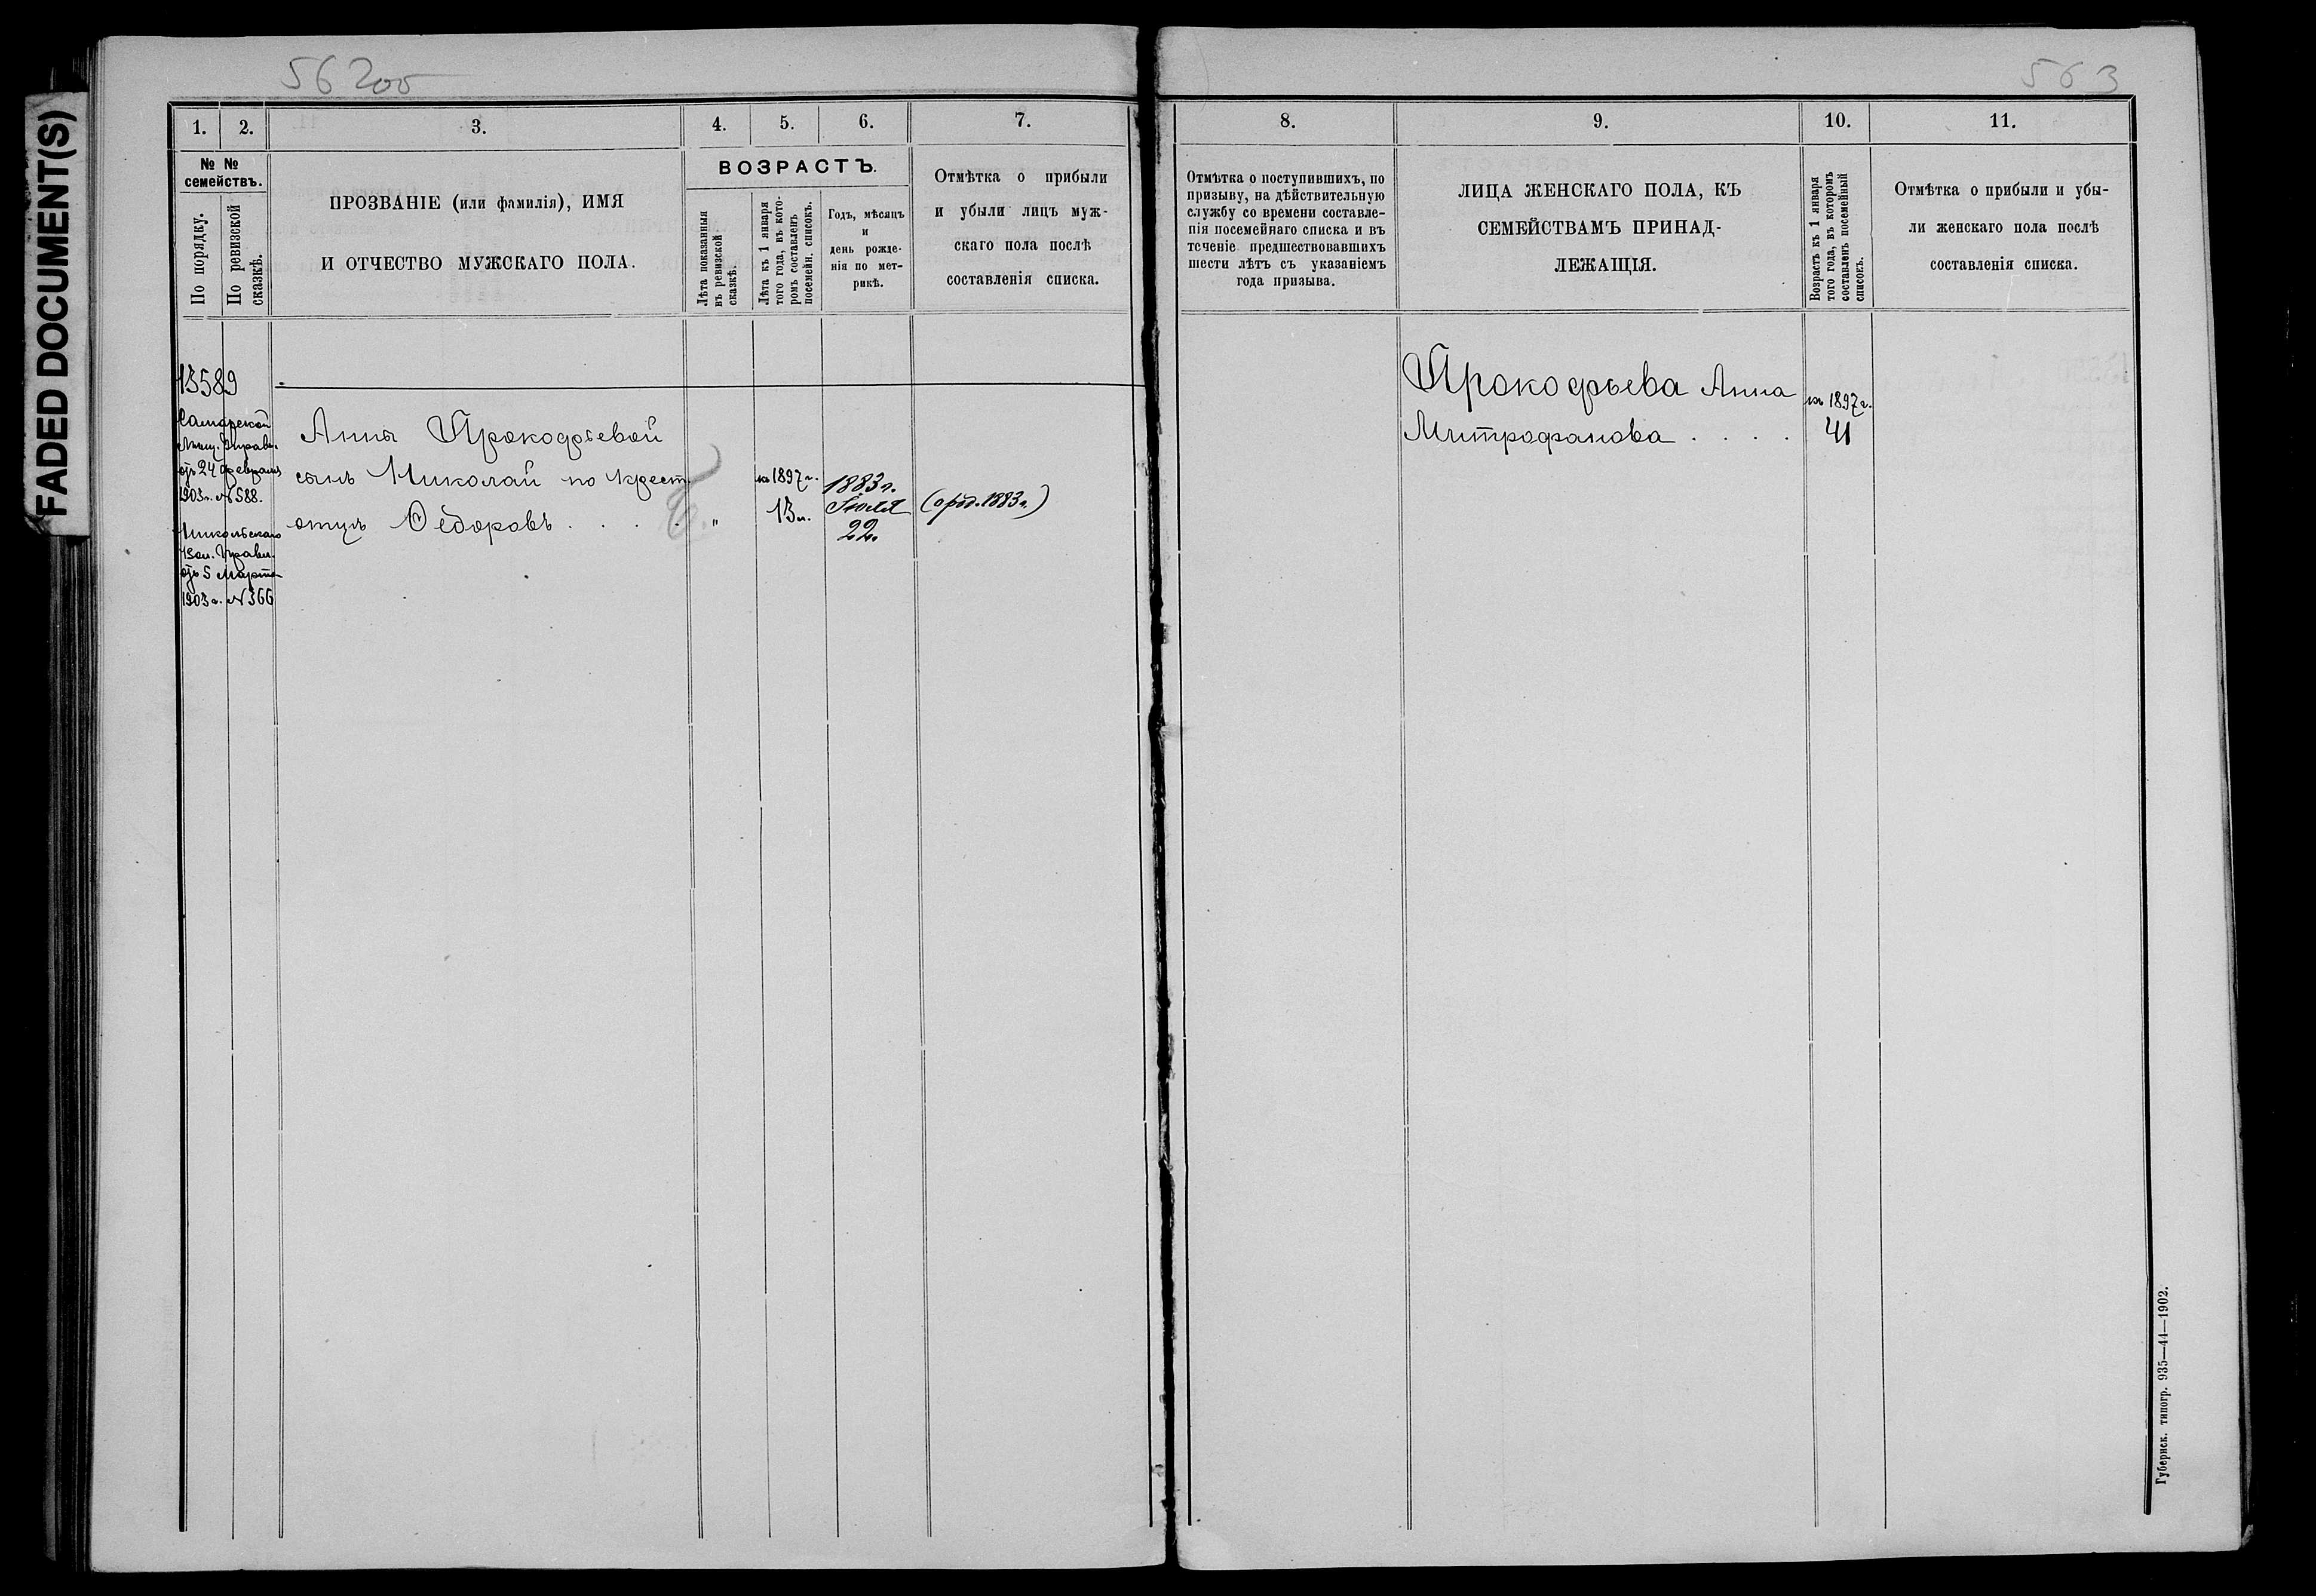 FADED DOCUMENT(S)
56 2об
56 3
1.
2.
3.
4.
5.
6.
7.
№ №
семействъ.
По порядку.
По ревизской
сказкѣ.
ПРОЗВАНІЕ (или фамилія), ИМЯ
И ОТЧЕСТВО МУЖСКАГО ПОЛА.
ВОЗРАСТЪ.
Лѣта показанныя
въ ревизской
сказкѣ.
Лѣта къ 1 января
того года, въ кото-
ромъ составленъ
посемейн. списокъ.
Годъ, мѣсяцъ
и
день рожде-
нія по мет-
рикѣ.
Отмѣтка о прибыли
и убыли лицъ муж-
скаго пола послѣ
составленія списка.
13589
Самарской
Мѣщ. Управы
отъ 24 февраля
1903г. № 588.
Никольскаго
Вол. Правл.
отъ 5 Марта
1903 г. № 366
Анны Прокофьевой
сынъ Николай по крест.
отцу Ѳедоровъ . . . .
"
къ 1897 г.
13 л.
1883 г.
Іюля
22.
(о род. 1883 г.)
8.
9.
10.
11.
Отмѣтка о поступившихъ, по
призыву, на дѣйствительную
службу со времени составле-
нія посемейнаго списка и въ
теченіе предшествовавшихъ
шести лѣтъ съ указаніемъ
года призыва.
ЛИЦА ЖЕНСКАГО ПОЛА, КЪ
СЕМЕЙСТВАМЪ ПРИНАД-
ЛЕЖАЩІЯ.
Возрастъ къ 1 января
того года, въ которомъ
составленъ посемейный
списокъ.
Отмѣтка о прибыли и убы-
ли женскаго пола послѣ
составленія списка.
Прокофьева Анна
Митрофанова . . . .
къ 1897 г.
41
Губернск. типогр. 935—44—1902.